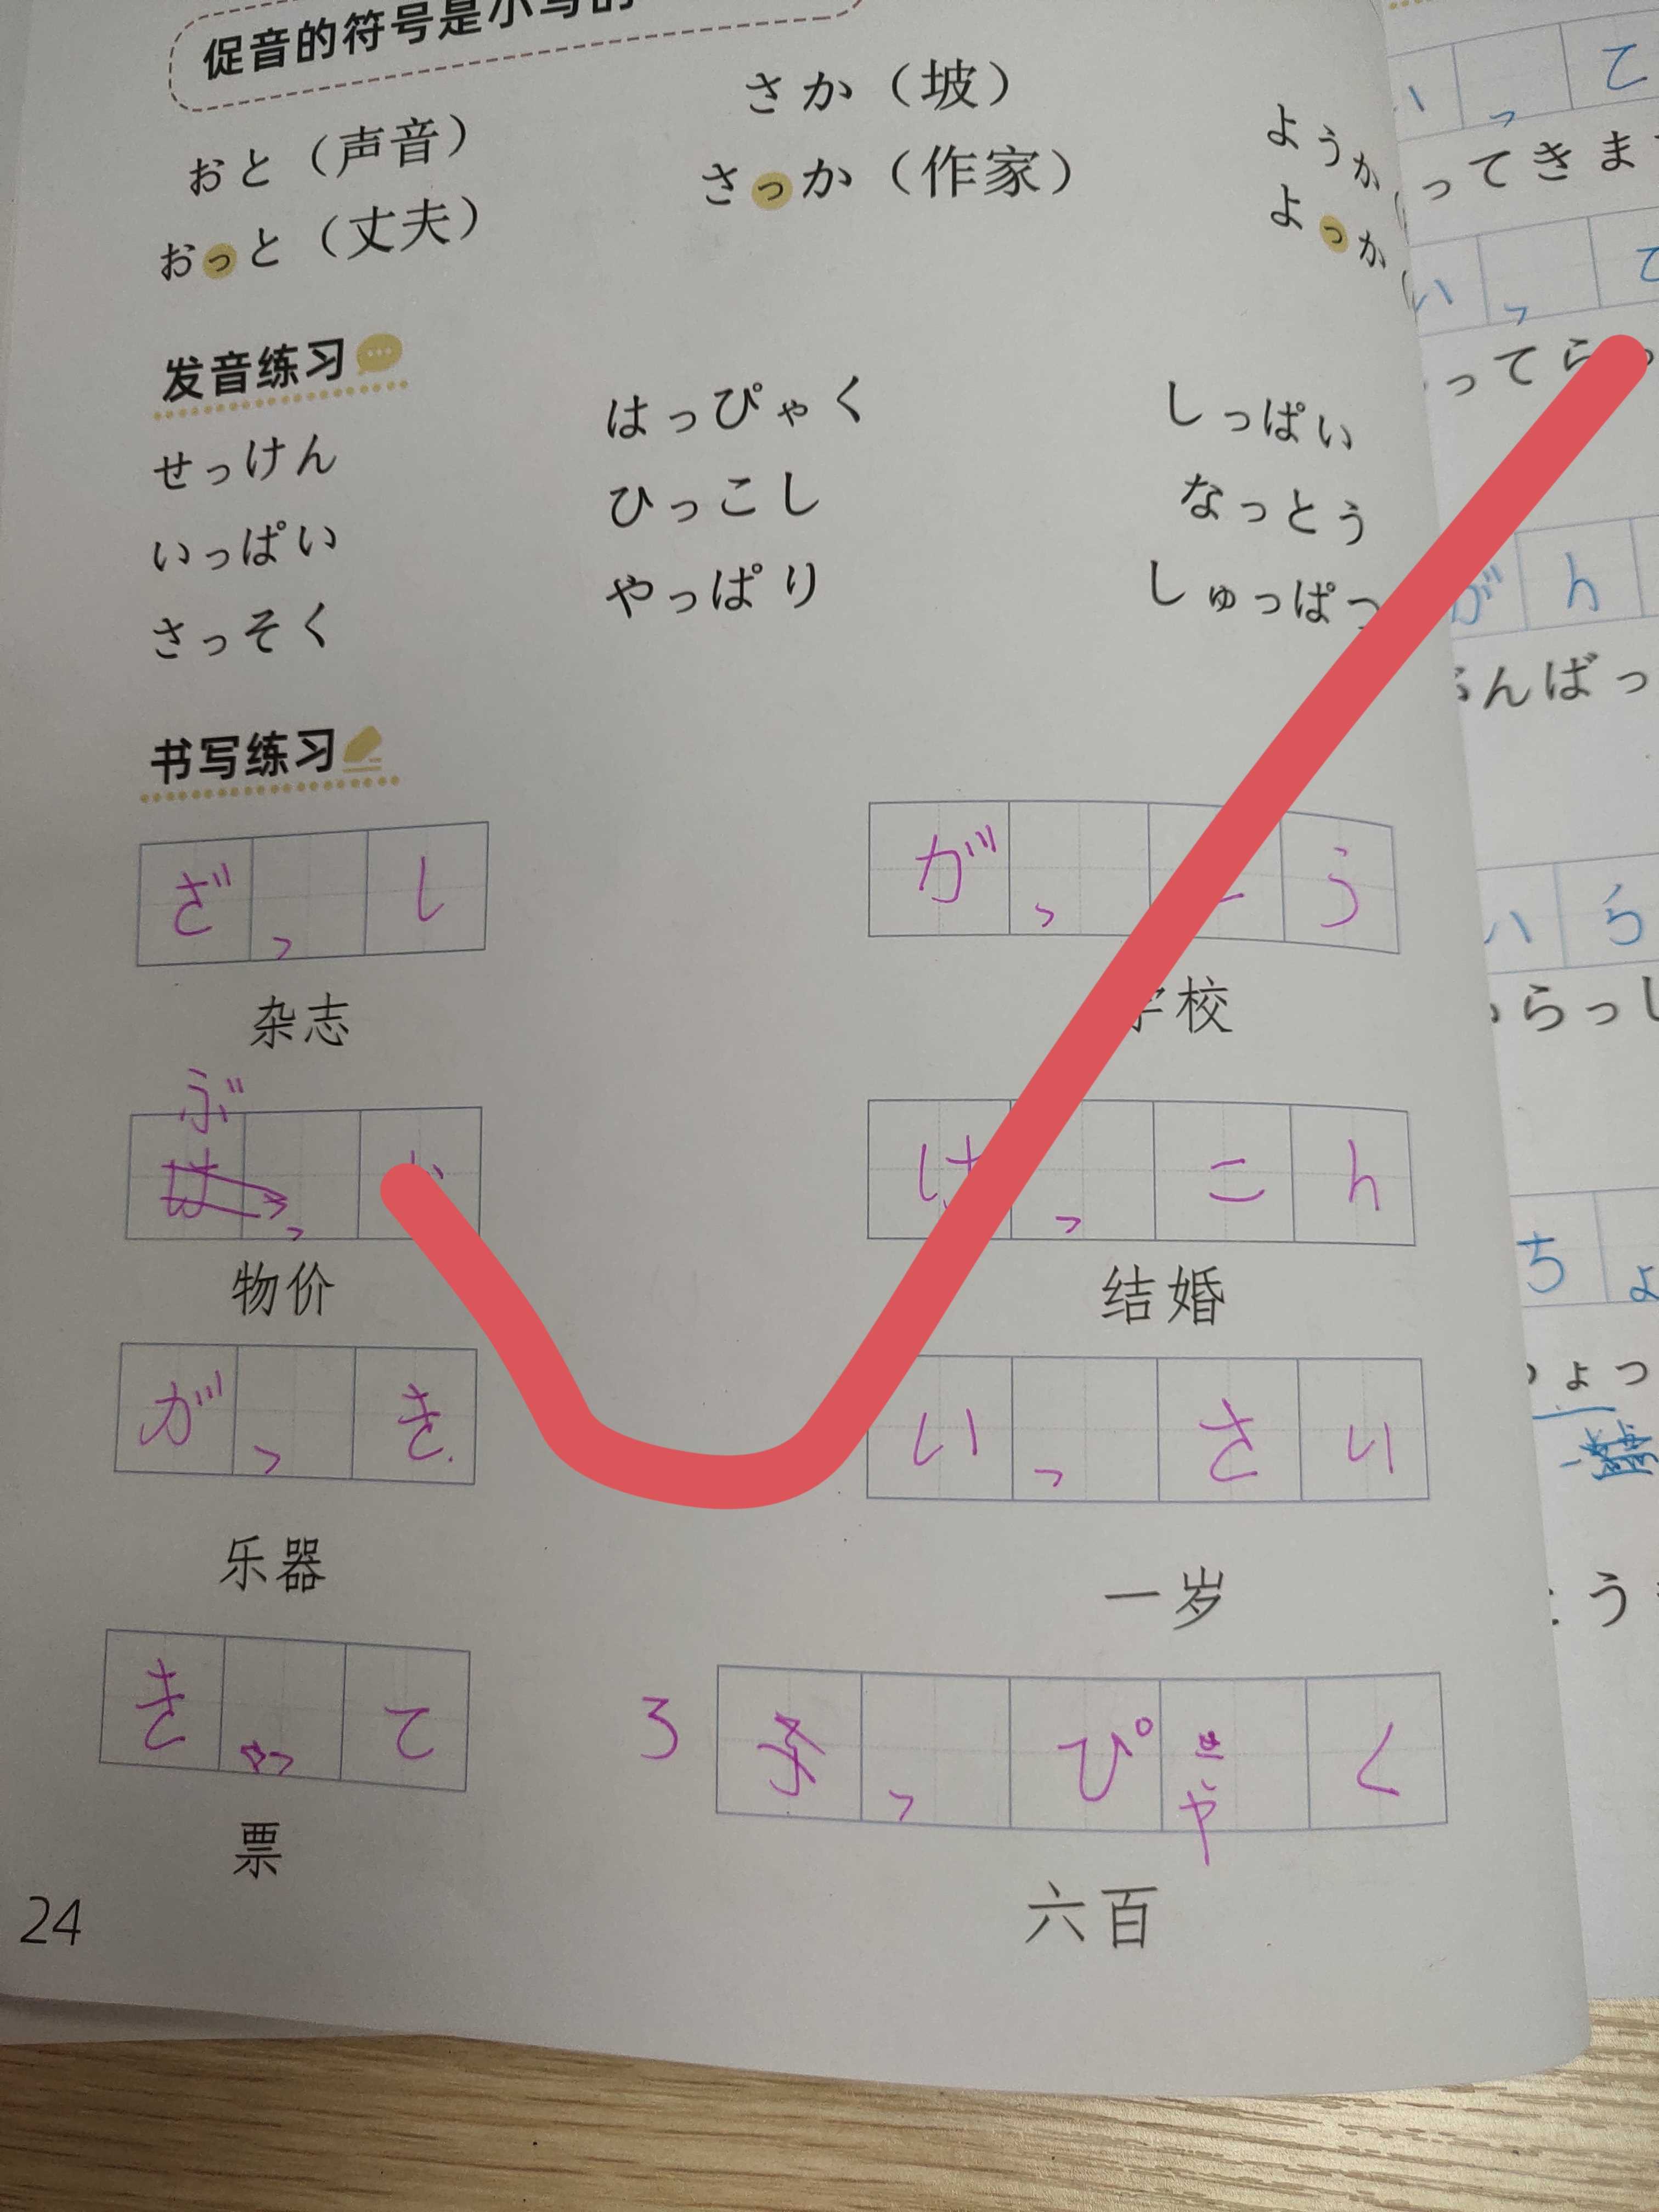 促音的符号是小写的
おと（声音）
さか（坡）
ようか
おっと（丈夫）
さっか（作家）
よっか
发音练习
せっけん
はっぴゃく
しっぱい
いっぱい
ひっこし
なっとう
さっそく
やっぱり
しゅっぱつ
书写练习
ざっし
がっこう
杂志
学校
ぶ
っ
っこん
物价
结婚
がっき
いっさい
乐器
一岁
きって
ろ
っぴゃく
票
六百
24
いって
ってきま
いって
ってらっ
がん
んばっ
いら
らっし
ちょ
ょっ
う